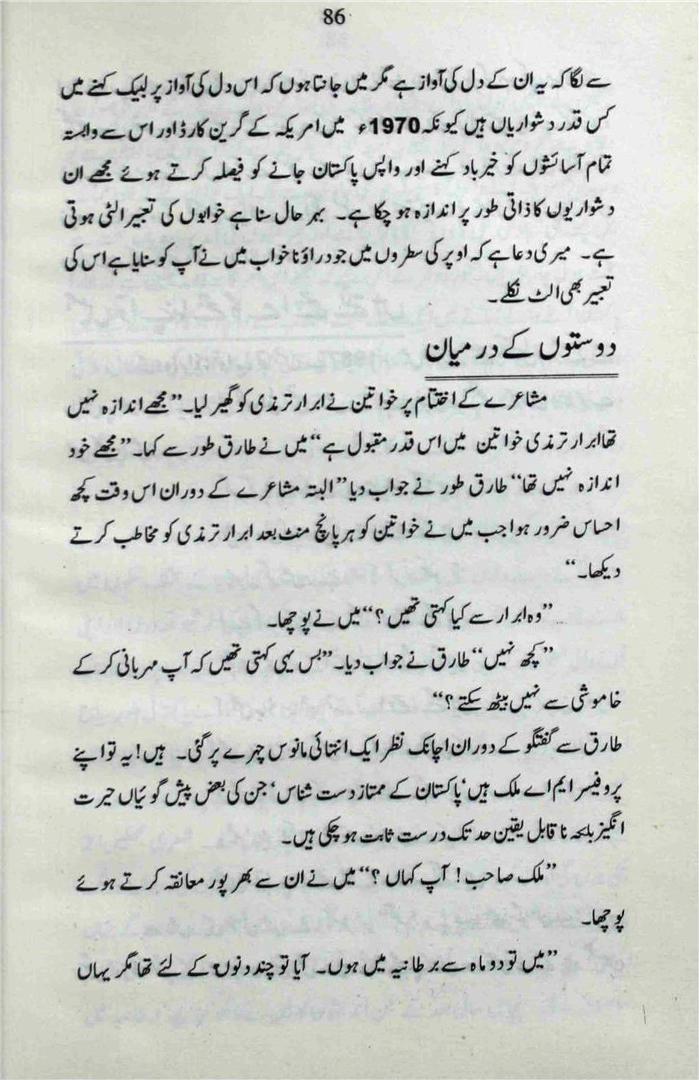 86
سے لگا کہ یہ ان کے دل کی آواز ہے مگر میں جانتا ہوں کہ اس دل کی آواز پر لبیک کہنے میں
کس قدر دشواریاں ہیں کیونکہ 1970ء میں امریکہ کے گرین کارڈ اور اس سے وابستہ
تمام آسائشوں کو خیرباد کہنے اور واپس پاکستان جانے کو فیصلہ کرتے ہوئے مجھے ان
دشواریوں کا ذاتی طور پر اندازہ ہو چکا ہے۔ بہر حال سنا ہے خوابوں کی تعبیر الٹی ہوتی
ہے۔ میری دعا ہے کہ اوپر کی سطروں میں جو دراؤنا خواب میں نے آپ کو سنایا ہے اس کی
تعبیر بھی الٹ نکلے۔
دوستوں کے درمیان
مشاعرے کے اختتام پر خواتین نے ابرار ترمذی کو گھیر لیا۔ ”مجھے اندازہ نہیں
تھا ابرار ترمذی خواتین میں اس قدر مقبول ہے“ میں نے طارق طور سے کہا۔ ”مجھے خود
اندازہ نہیں تھا“ طارق طور نے جواب دیا ”البتہ مشاعرے کے دوران اس وقت کچھ
احساس ضرور ہوا جب میں نے خواتین کو ہر پانچ منٹ بعد ابرار ترمذی کو مخاطب کرتے
دیکھا۔“
”وہ ابرار سے کیا کہتی تھیں؟“ میں نے پوچھا۔
”کچھ نہیں“ طارق نے جواب دیا۔ ”بس یہی کہتی تھیں کہ آپ مہربانی کر کے
خاموشی سے نہیں بیٹھ سکتے؟“
طارق سے گفتگو کے دوران اچانک نظر ایک انتہائی مانوس چہرے پر گئی۔ ہیں! یہ تو اپنے
پروفیسر ایم اے ملک ہیں‘ پاکستان کے ممتاز دست شناس‘ جن کی بعض پیش گوئیاں حیرت
انگیز بلکہ ناقابل یقین حد تک درست ثابت ہو چکی ہیں۔
”ملک صاحب! آپ کہاں؟“ میں نے ان سے بھرپور معانقہ کرتے ہوئے
پوچھا۔
”میں تو دو ماہ سے برطانیہ میں ہوں۔ آیا تو چند دنوں کے لئے تھا مگر یہاں